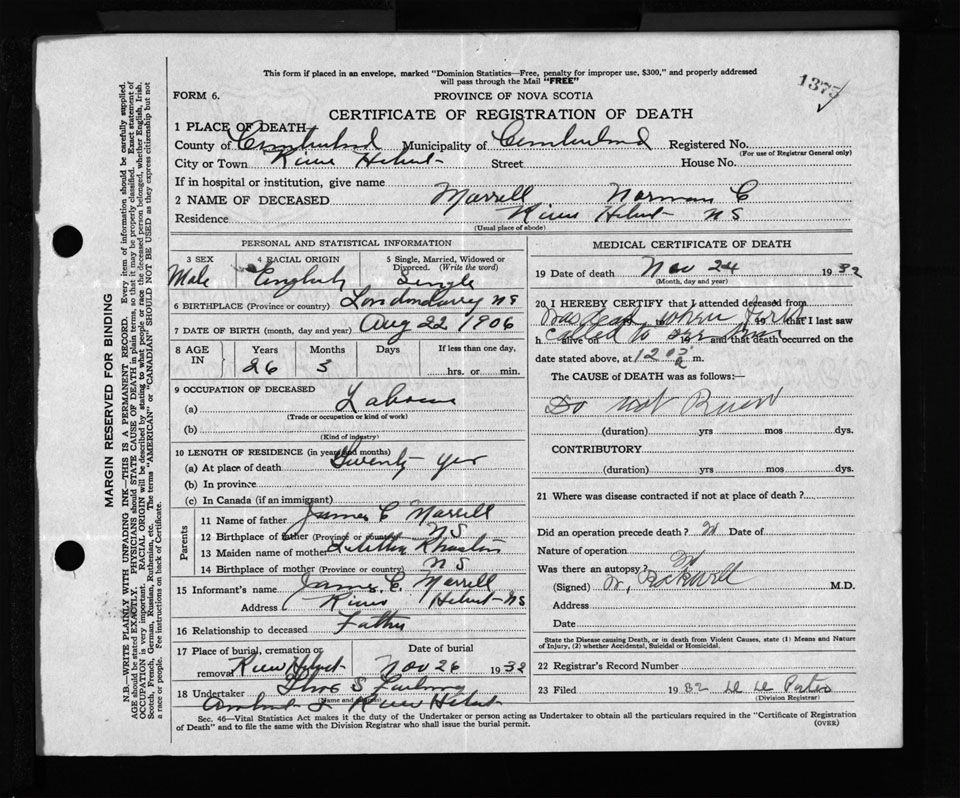 This form if placed in an envelope, marked "Dominion Statistics—Free, penalty for improper use, $300," and properly addressed
will pass through the Mail "FREE"
1375
FORM 6.
PROVINCE OF NOVA SCOTIA
CERTIFICATE OF REGISTRATION OF DEATH
1 PLACE OF DEATH
County of Cumberland Municipality of Cumberland Registered No.
(For use of Registrar General only)
City or Town River Hebert Street House No.
If in hospital or institution, give name
2 NAME OF DECEASED Marrell Norman C
Residence River Hebert NS
(Usual place of abode)
PERSONAL AND STATISTICAL INFORMATION
3 SEX
Male
4 RACIAL ORIGIN
English
5 Single, Married, Widowed or
Divorced. (Write the word)
Single
6 BIRTHPLACE (Province or country) Londonderry NS
7 DATE OF BIRTH (month, day and year) Aug 22 1906
8 AGE IN
Years Months Days If less than one day,
26 3 hrs. or min.
9 OCCUPATION OF DECEASED
(a) Labourer
(Trade or occupation or kind of work)
(b)
(Kind of industry)
10 LENGTH OF RESIDENCE (in years and months)
(a) At place of death Twenty yrs
(b) In province
(c) In Canada (if an immigrant)
Parents
11 Name of father James C Marrell
12 Birthplace of father (Province or country) NS
13 Maiden name of mother
14 Birthplace of mother (Province or country) NS
15 Informant's name James C. Marrell
Address River Hebert NS
16 Relationship to deceased Father
17 Place of burial, cremation or
removal River Hebert
Date of burial
Nov 26 1932
18 Undertaker
(Name and address)
Amherst & River Hebert
MEDICAL CERTIFICATE OF DEATH
19 Date of death Nov 24 1932
(Month, day and year)
20 I HEREBY CERTIFY that I attended deceased from
was dead when first
19 to 19 that I last saw
called to see him
h alive on 19 and that death occurred on the
date stated above, at 12 a m.
The CAUSE of DEATH was as follows:—
Do not Know
(duration) yrs mos dys.
CONTRIBUTORY
(duration) yrs mos dys.
21 Where was disease contracted if not at place of death?
Did an operation precede death? Date of
Nature of operation
Was there an autopsy?
(Signed) W. Rockwell M.D.
Address
Date
State the Disease causing Death, or in death from Violent Causes, state (1) Means and Nature
of Injury, (2) whether Accidental, Suicidal or Homicidal.
22 Registrar's Record Number
23 Filed 1932
(Division Registrar)
Sec. 46—Vital Statistics Act makes it the duty of the Undertaker or person acting as Undertaker to obtain all the particulars required in the "Certificate of Registration
of Death" and to file the same with the Division Registrar who shall issue the burial permit.
(OVER)
MARGIN RESERVED FOR BINDING
N.B.—WRITE PLAINLY WITH UNFADING INK—THIS IS A PERMANENT RECORD. Every item of information should be carefully supplied.
AGE should be stated EXACTLY. PHYSICIANS should STATE CAUSE OF DEATH in plain terms, so that it may be properly classified. Exact statement of
OCCUPATION is very important. RACIAL ORIGIN will be described by stating to what people or race the deceased person belonged, whether English, Irish,
Scotch, French, German, Russian, Ruthenian, etc. The terms "AMERICAN" or "CANADIAN" SHOULD NOT BE USED as they express citizenship but not
a race or people. See instructions on back of Certificate.